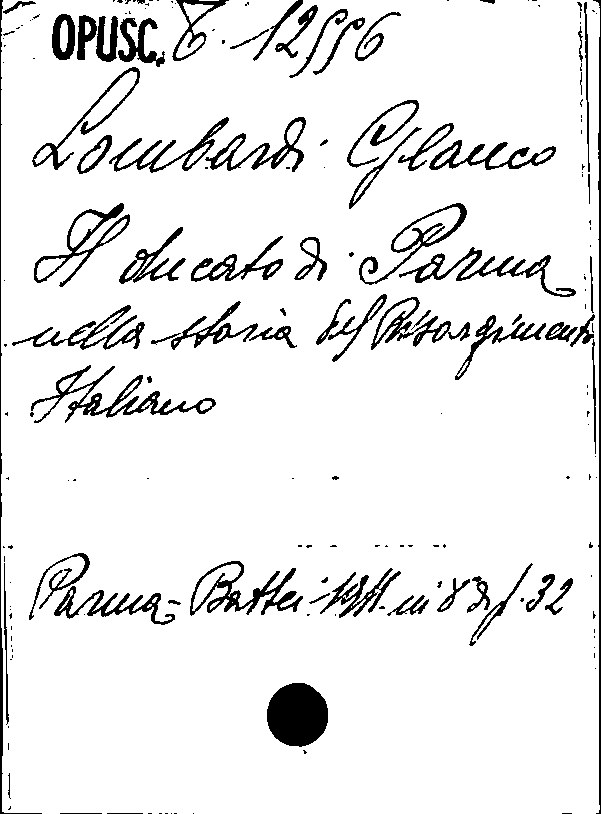 OPUSC. C. 12556
Lombardi Glauco
Il ducato di Parma
nella storia del Risorgimento
Italiano
Parma - Battei - 1911. in 8° di p. 32